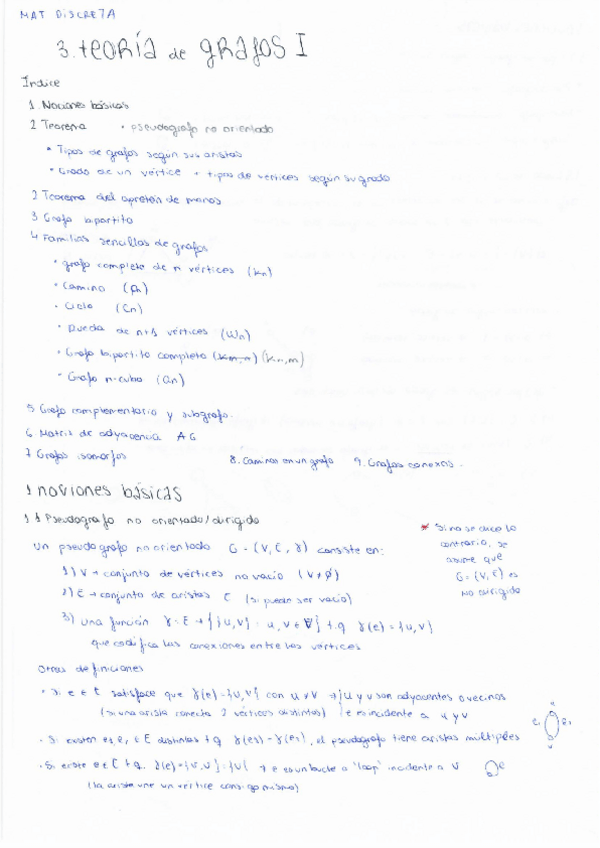 MAT DISCRETA
3. teoría de grafos I
Indice
1 Nociones básicas
2 Teorema • pseudografo no orientado
• Tipos de grafos según sus aristas
• Grado de un vértice + tipos de vertices según su grado
2 Teorema del apretón de manos
3 Grafo bipartito
4 Familias sencillas de grafos
• grafo completo de n vértices (Kn)
• Camino (Pn)
• Ciclo (Cn)
• Rueda de n+1 vértices (Wn)
• Grafo bipartito completo (Km,n) (Kn,m)
• Grafo n-cubo (Qn)
5 Grafo complementario y subgrafo.
6 Matriz de adyacencia AG
7 Grafos isomorfos 8. Caminos en un grafo 9. Grafos conexos.
1 nociones básicas
1.1 Pseudografo no orientado/dirigido
Un pseudografo no orientado G = (V, E, γ) consiste en:
* Si no se dice lo
contrario, se
asume que
G = (V, E) es
no dirigido
1) V → conjunto de vértices no vacío (V ≠ ∅)
2) E → conjunto de aristas E (si puede ser vacío)
3) una función γ: E → {{u,v} : u, v ∈ V} t.q γ(e) = {u,v}
que codifica las conexiones entre los vértices
Otras definiciones
• Si e ∈ E satisface que γ(e) = {u,v} con u ≠ v → u y v son adyacentes o vecinos
(si una arista conecta 2 vértices distintos) e es incidente a u y v
• Si existen e1, e2 ∈ E distintas t.q γ(e1) = γ(e2), el pseudografo tiene aristas múltiples
e1 e2
• Si existe e ∈ E t.q. γ(e) = {v,v} = {v} → e es un bucle o "loop" incidente a v
e
(la arista une un vértice consigo mismo)